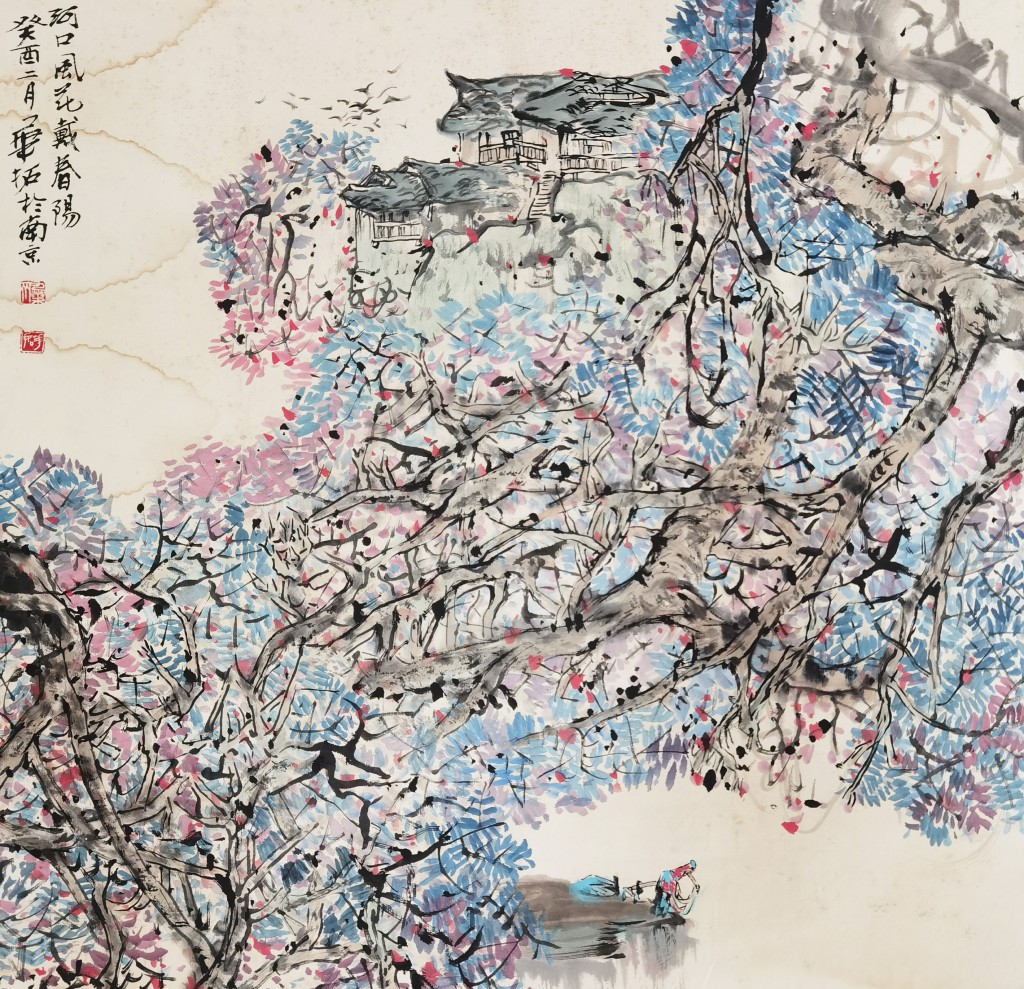 河口風花戴春陽
癸酉二月華拓於南京